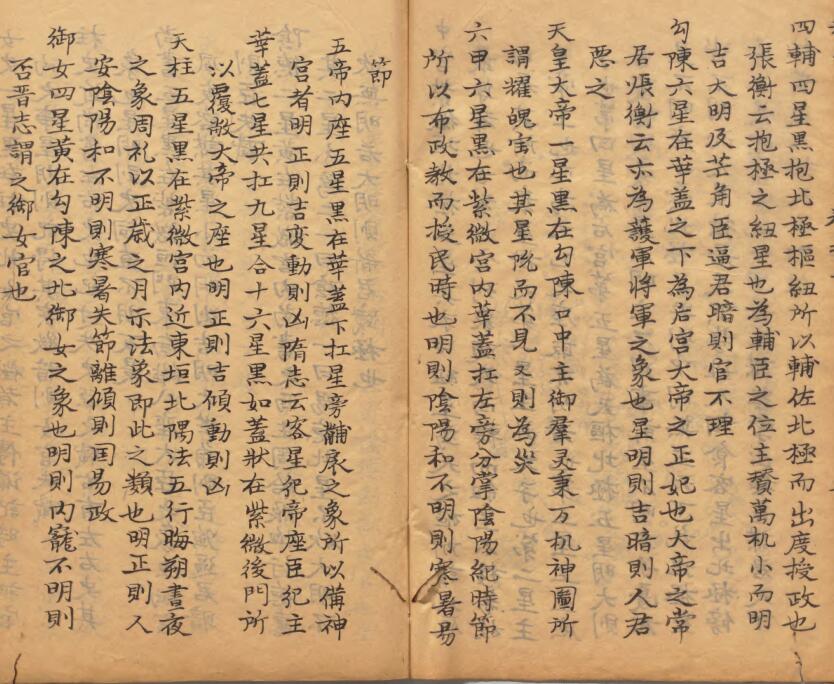 四輔四星黑抱北極樞紐所以輔佐北極而出度授政也
張衡云抱極之紐星也為輔臣之位主贊萬机小而明
吉大明及芒角臣逼君暗則官不理
勾陳六星在華盖之下為后宫大帝之正妃也大帝之常
居張衡云亦為護軍將軍之象也星明則吉暗則人君
惡之
天皇大帝一星黑在勾陳口中主御羣灵秉万机神圖所
謂耀魄宝也其星隐而不見見則為災
六甲六星黑在紫微宫内華蓋杠左旁分掌陰陽紀時節
所以布政教而授民時也明則陰陽和不明則寒暑易
節
五帝内座五星黑在華蓋下杠星旁黼扆之象所以備神
宫者明正則吉变動則凶隋志云客星犯帝座臣犯主
華蓋七星共扛九星合十六星黑如蓋狀在紫微後門所
以覆敝大帝之座也明正則吉傾動則凶
天柱五星黑在紫微宫内近東垣北隅法五行晦朔晝夜
之象周礼以正歲之月示法象即此之類也明正則人
安陰陽和不明則寒暑失節離傾則国易政
御女四星黄在勾陳之北御女之象也明則内寵不明則
否晋志謂之御女官也